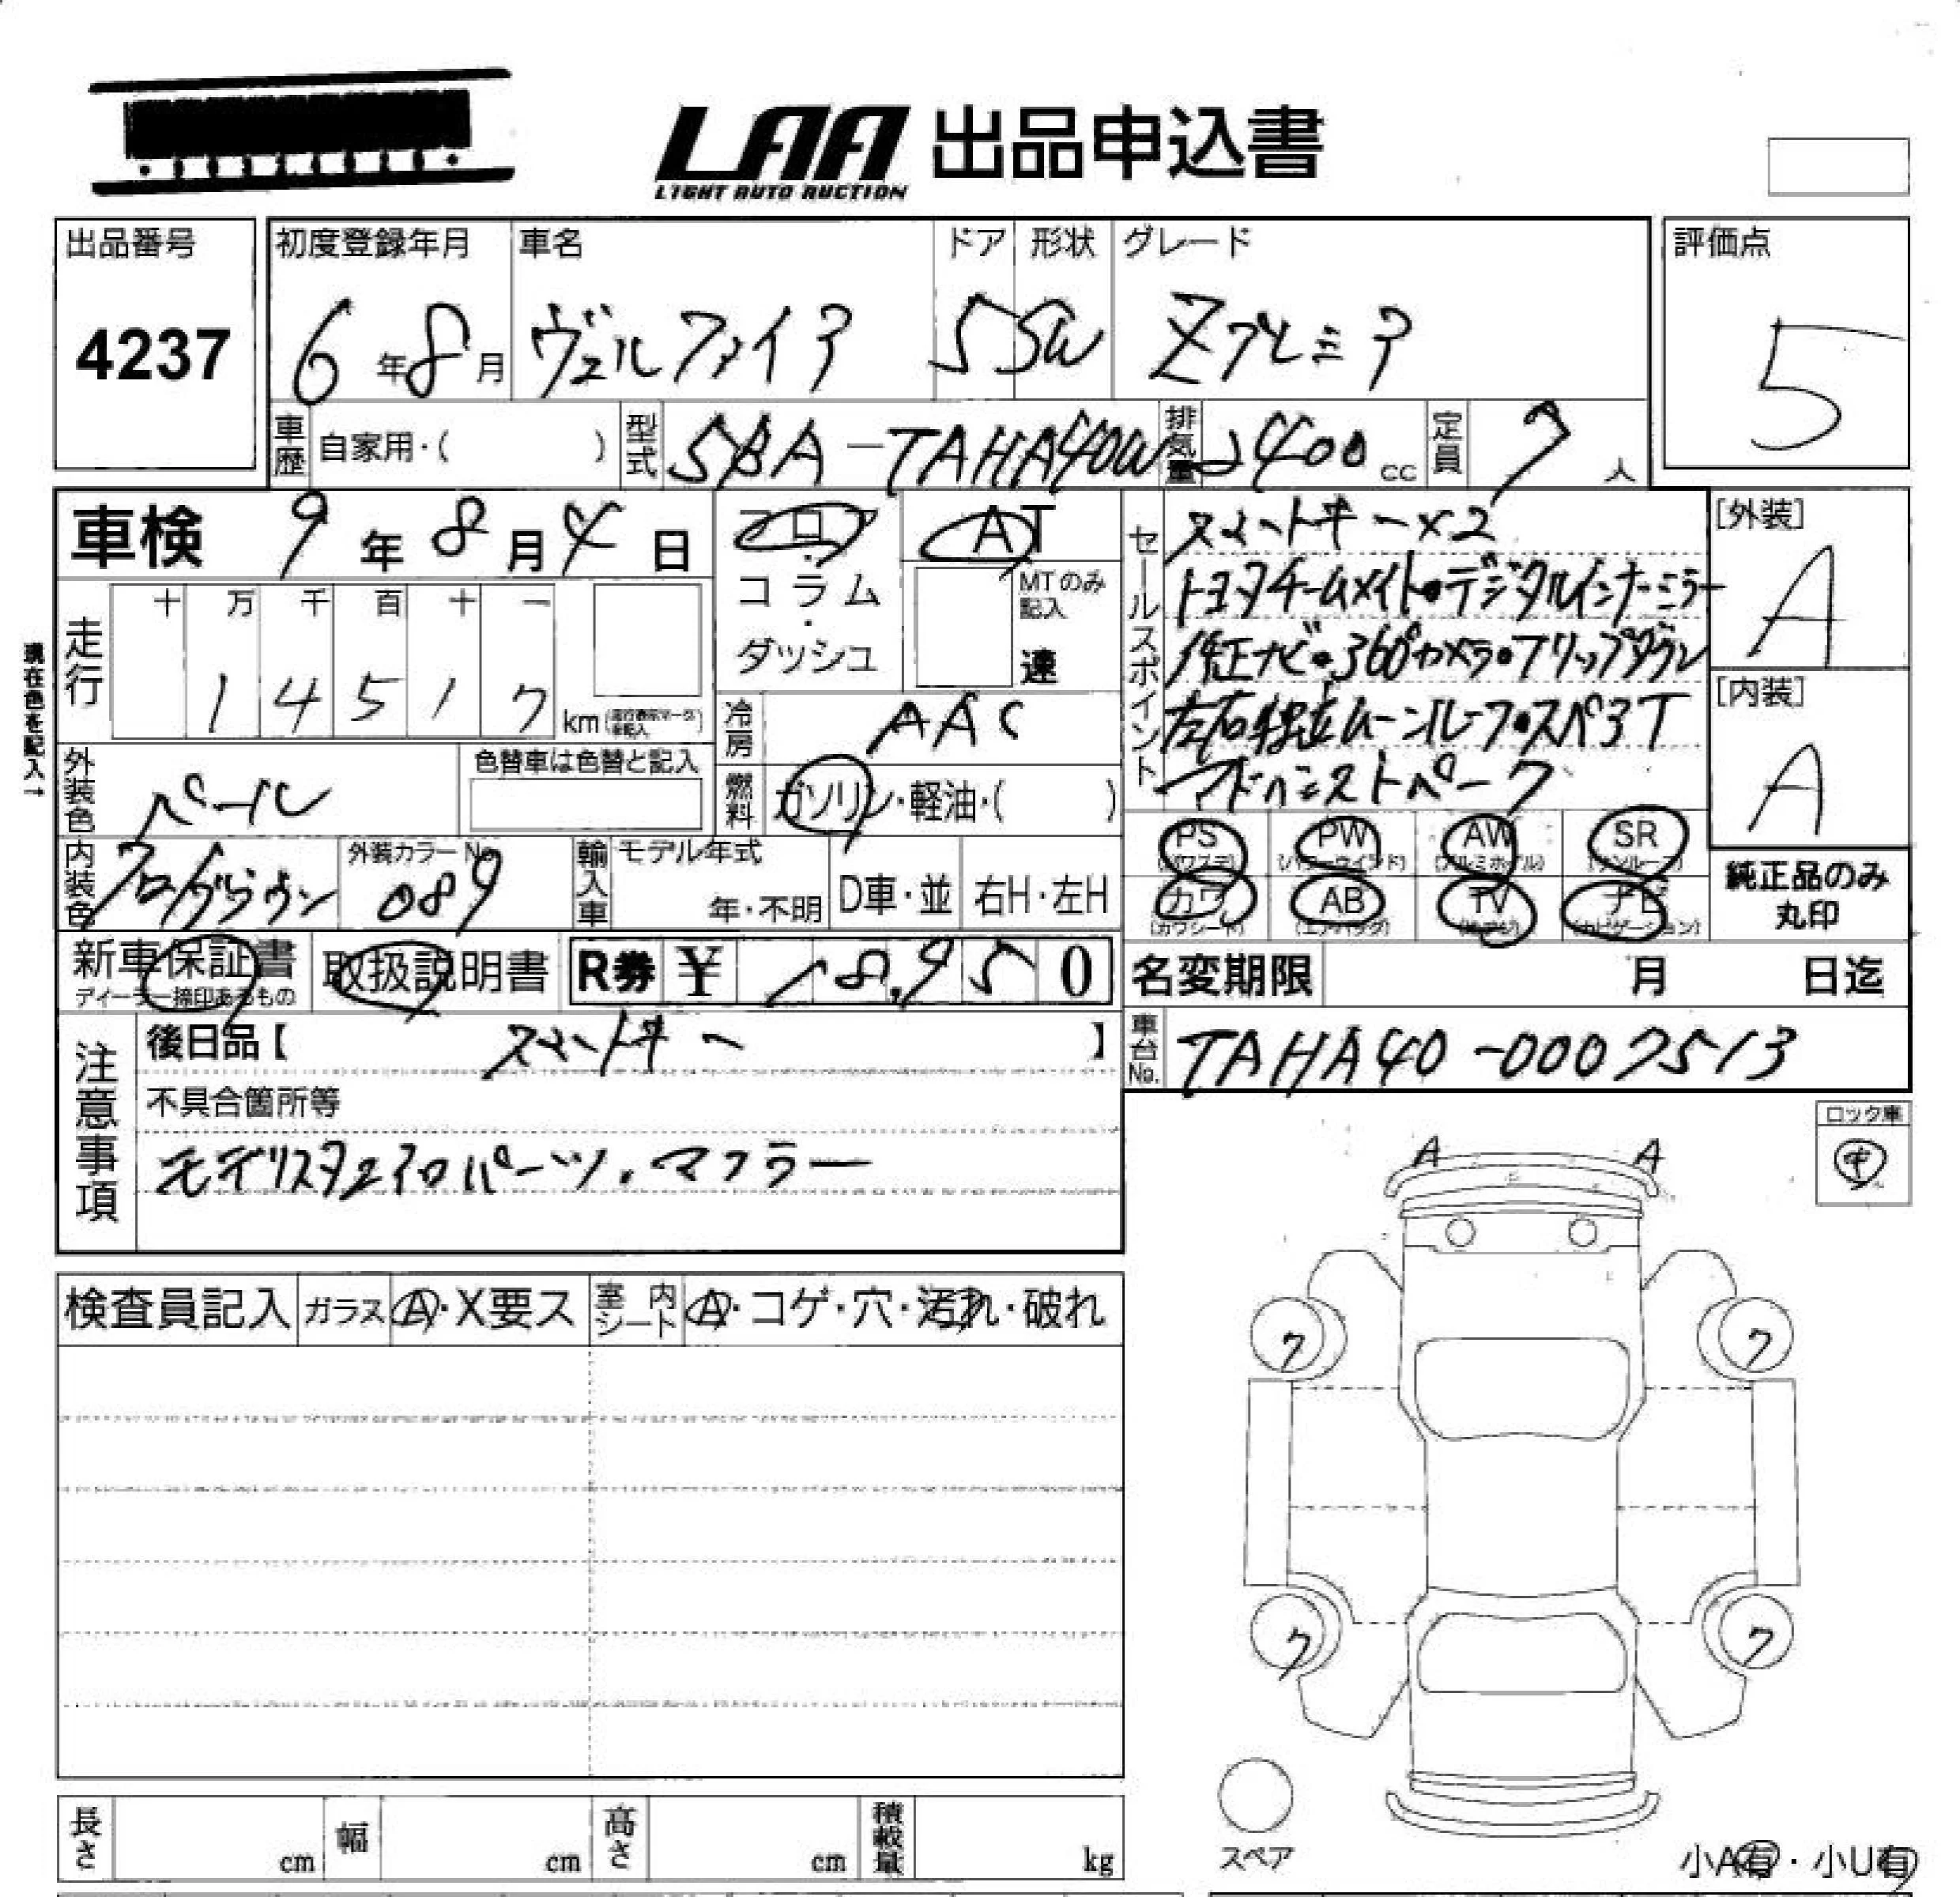 LAA 出品申込書
LIGHT AUTO AUCTION
出品番号
4237
初度登録年月
6年8月
車名
ヴェルファイア
ドア
5
形状
SW
グレード
Zプレミア
評価点
5
車歴
自家用・( )
型式
5BA-TAHA40W
排気量
2400cc
定員
7人
車検 9年8月4日
フロア
・
コラム
・
ダッシュ
AT
MTのみ
記入
速
セールスポイント
スマートキー×2
トヨタチームメイト・デジタルインナーミラー
純正ナビ・360°カメラ・フリップダウン
左右独立ムーンルーフ・スペアT
アドバンストパーク
[外装]
A
[内装]
A
現在色を記入→
走行
十 万 千 百 十 一
1 4 5 1 7
km
冷房
AAC
外装色
パール
色替車は色替と記入
燃料
ガソリン・軽油・( )
PS PW AW SR
(パワステ) (パワーウインド) (アルミホイル) (サンルーフ)
カワ AB TV ナビ
(カワシート) (エアバッグ) (カビゲーション)
純正品のみ
丸印
内装色
外装カラーNo.
089
輸入車
モデル年式
年・不明
D車・並
右H・左H
新車保証書
ディーラー捺印あるもの
取扱説明書
R券 ¥ 18,950
名変期限 月 日迄
車台No.
TAHA40-0007513
注意事項
後日品【 スマートキー 】
不具合箇所等
モデリスタエアロパーツ、マフラー
ロック車
中
A A
検査員記入
ガラス
A・X要ス
室内シート
A・コゲ・穴・汚れ・破れ
7 7
7 7
スペア
小A有・小U有
長さ cm
幅 cm
高さ cm
積載量 kg